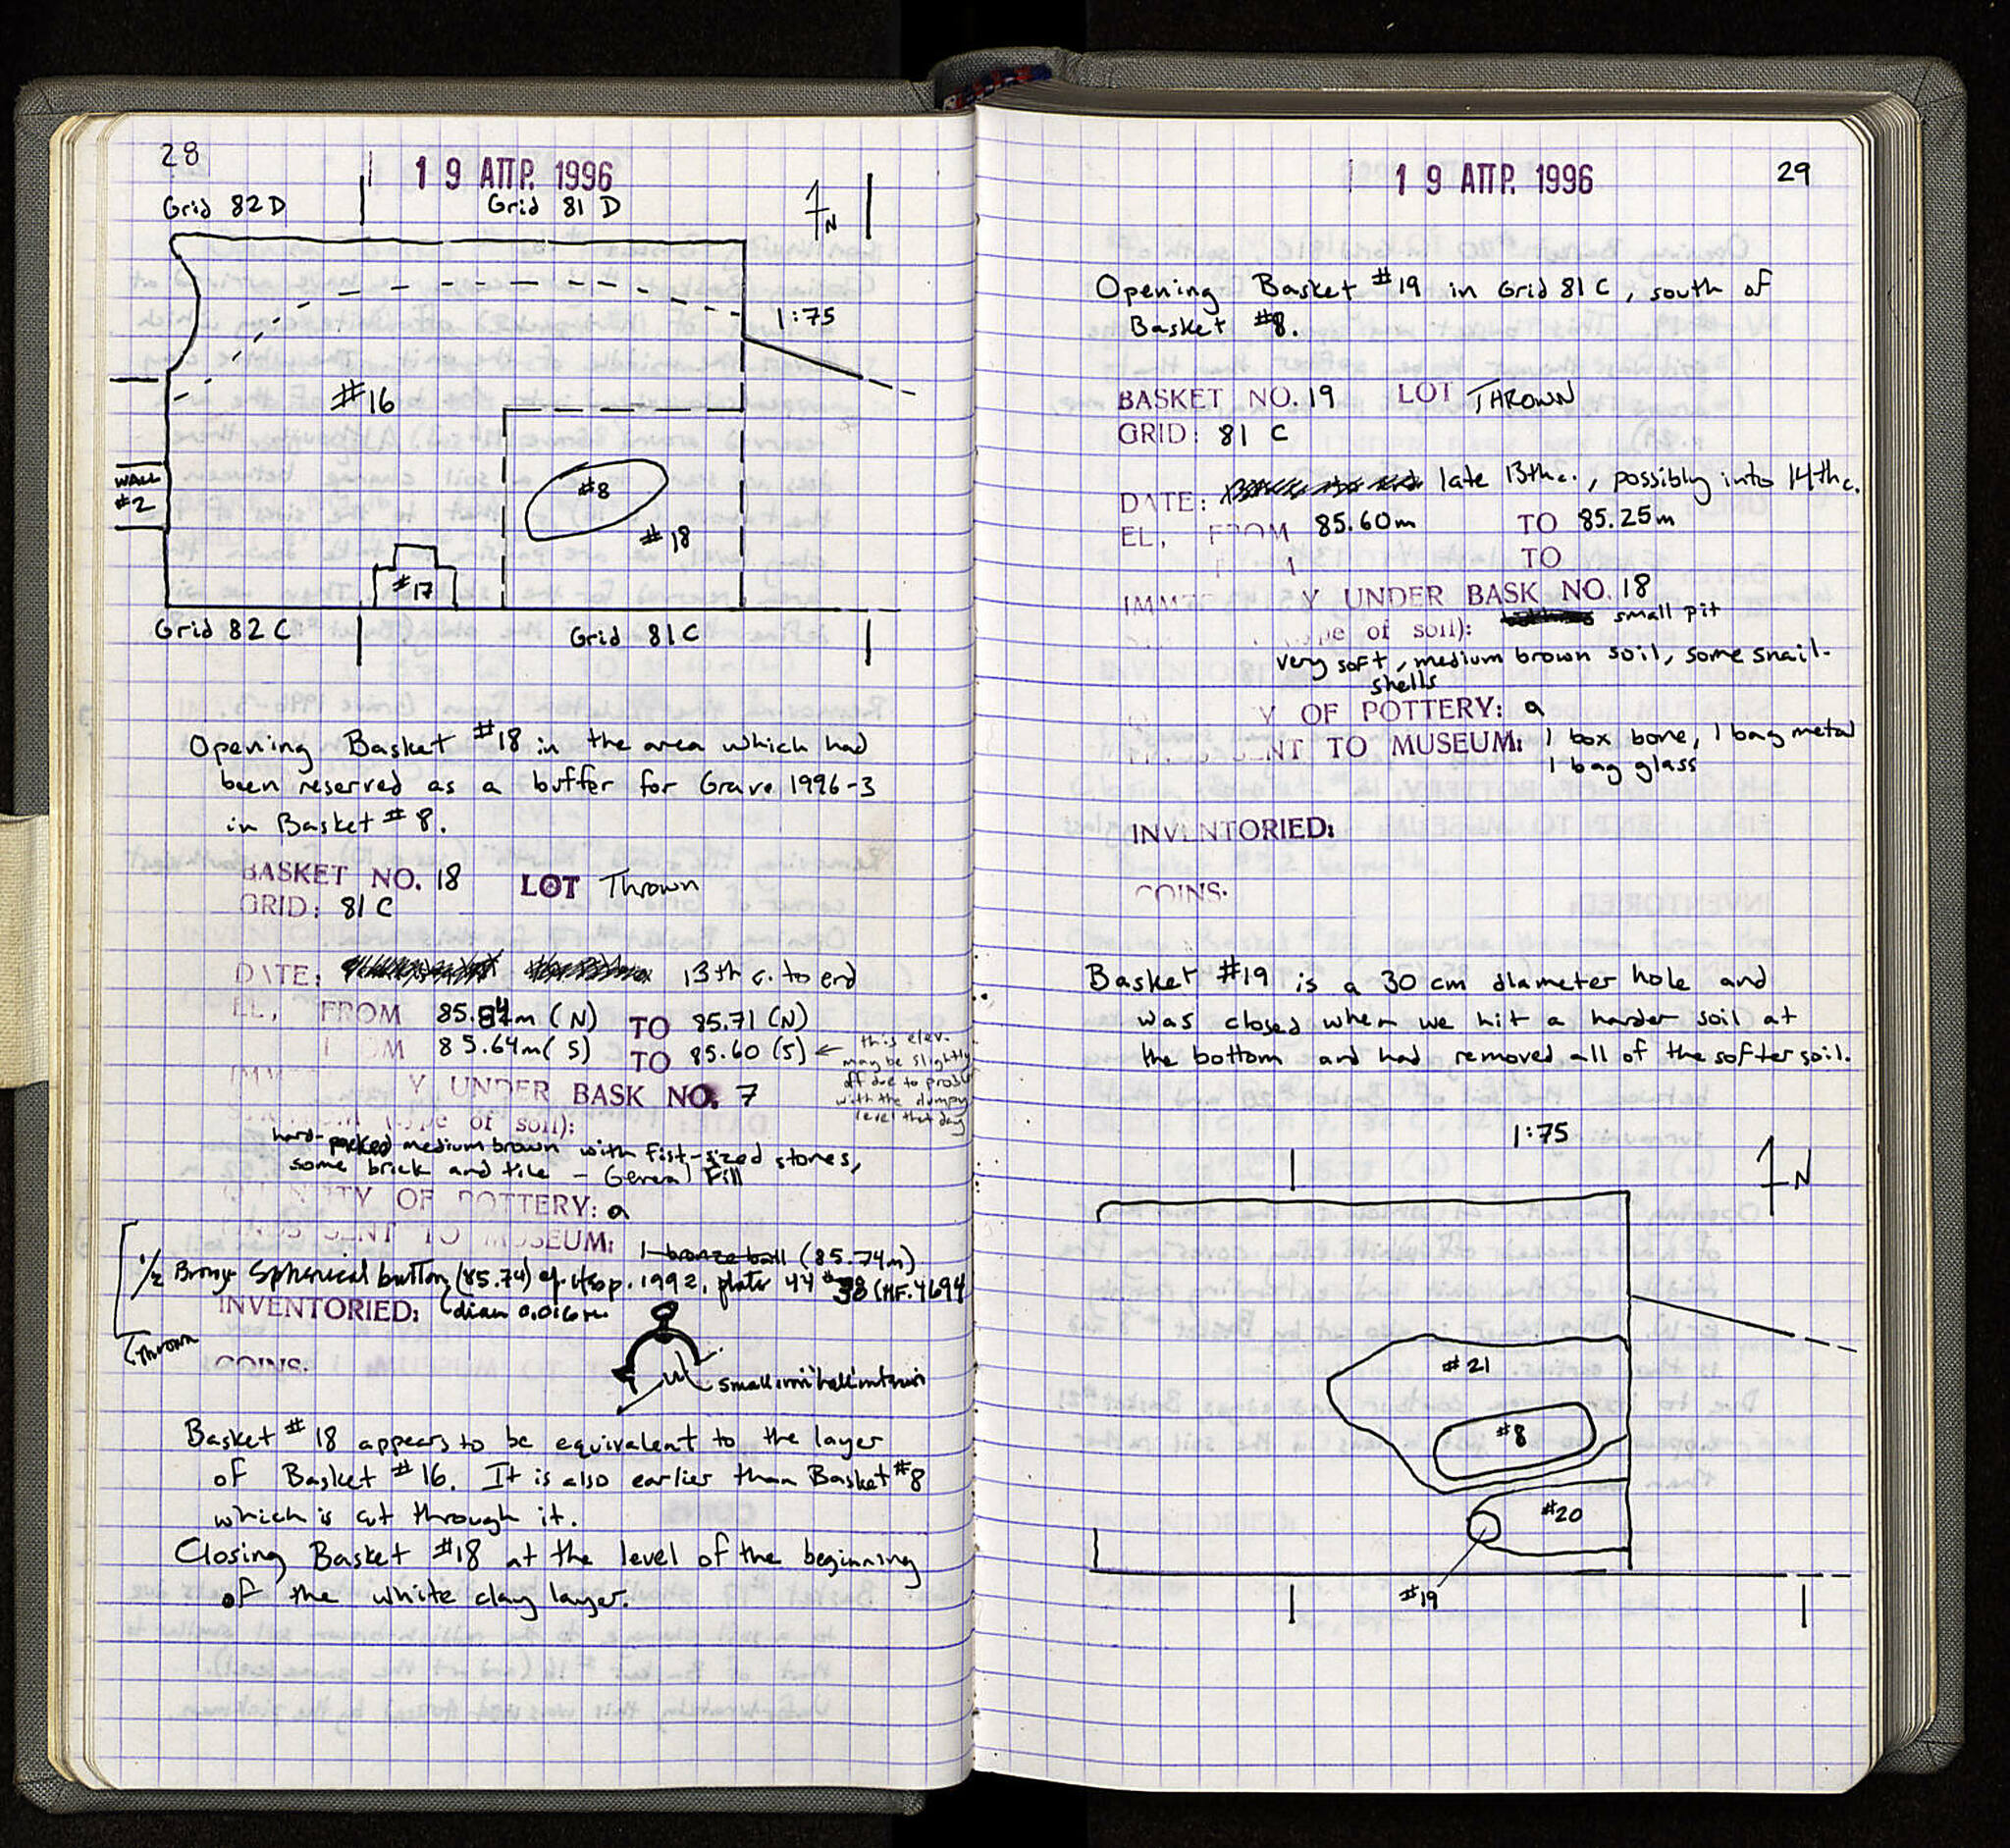 28
19 ΑΠΡ. 1996
Grid 82 D
Grid 81 D
N
1:75
#16
WALL
#2
#8
#18
#17
Grid 82 C
Grid 81 C
Opening Basket #18 in the area which had
been reserved as a buffer for Grave 1996-3
in Basket #8.
BASKET NO. 18 LOT Thrown
GRID: 81 C
DATE: 13th c. to end
EL, FROM 85.84m (N) TO 85.71 (N)
85.64m (S) TO 85.60 (S) ←
this elev.
may be slightly
off due to probs
with the dumpy
level that day
Y UNDER BASK NO. 7
of soil):
hard-packed medium brown with fist-sized stones,
some brick and tile – General Fill
TY OF POTTERY: a
SENT TO MUSEUM: 1 bronze ball (85.74m)
1/2 Bronze Spherical button (85.74) cf. Hesp. 1992, plate 44 #38 (MF. 4694
INVENTORIED: diam 0.016m
Thrown
COINS:
small iron ball within
Basket #18 appears to be equivalent to the layer
of Basket #16. It is also earlier than Basket #8
which is cut through it.
Closing Basket #18 at the level of the beginning
of the white clay layer.
19 ΑΠΡ. 1996
29
Opening Basket #19 in Grid 81 C, south of
Basket #8.
BASKET NO. 19 LOT THROWN
GRID: 81 C
DATE: late 13th c., possibly into 14th c.
EL, FROM 85.60m TO 85.25m
TO
Y UNDER BASK NO. 18
of soil): small pit
very soft, medium brown soil, some snail-
shells
Y OF POTTERY: a
ENT TO MUSEUM: 1 box bone, 1 bag metal
1 bag glass
INVENTORIED:
COINS:
Basket #19 is a 30 cm diameter hole and
was closed when we hit a harder soil at
the bottom and had removed all of the softer soil.
1:75
N
#21
#8
#20
#19